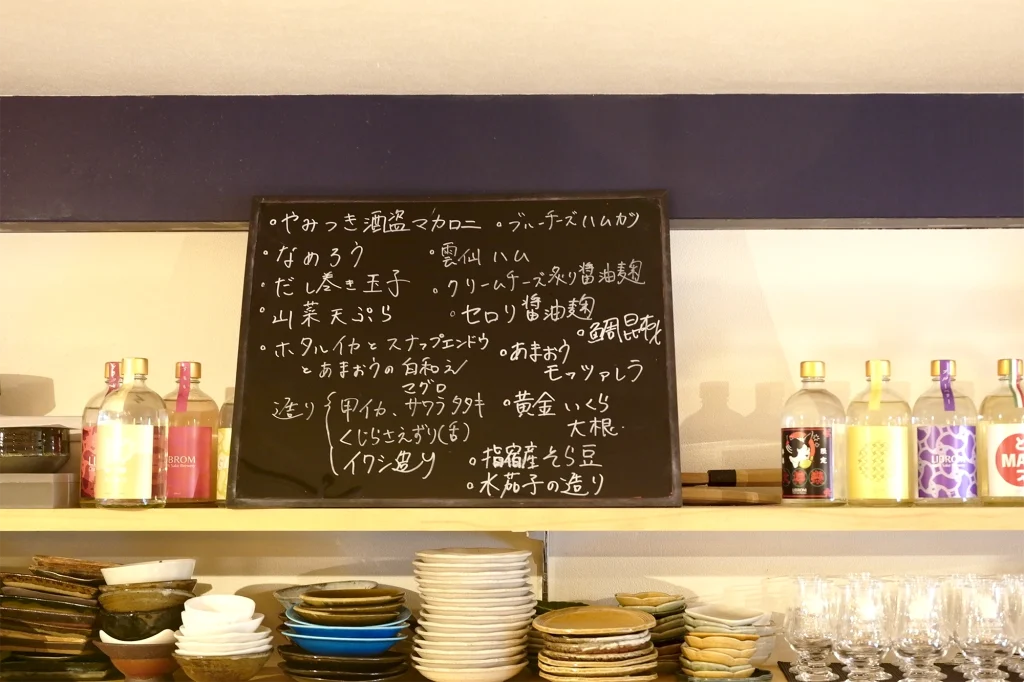 ・やみつき酒盗マカロニ
・なめろう
・だし巻き玉子
・山菜天ぷら
・ホタルイカとスナップエンドウ
とあまおうの白和え
マグロ
造り 甲イカ、サワラタタキ
くじらさえずり(舌)
イワシ造り
・ブルーチーズハムカツ
・雲仙ハム
・クリームチーズ炙り醤油麹
・セロリ醤油麹
・鯛昆布〆
・あまおう
モッツァレラ
・黄金いくら
大根
・指宿産そら豆
・水茄子の造り
LIBROM
LIBROM